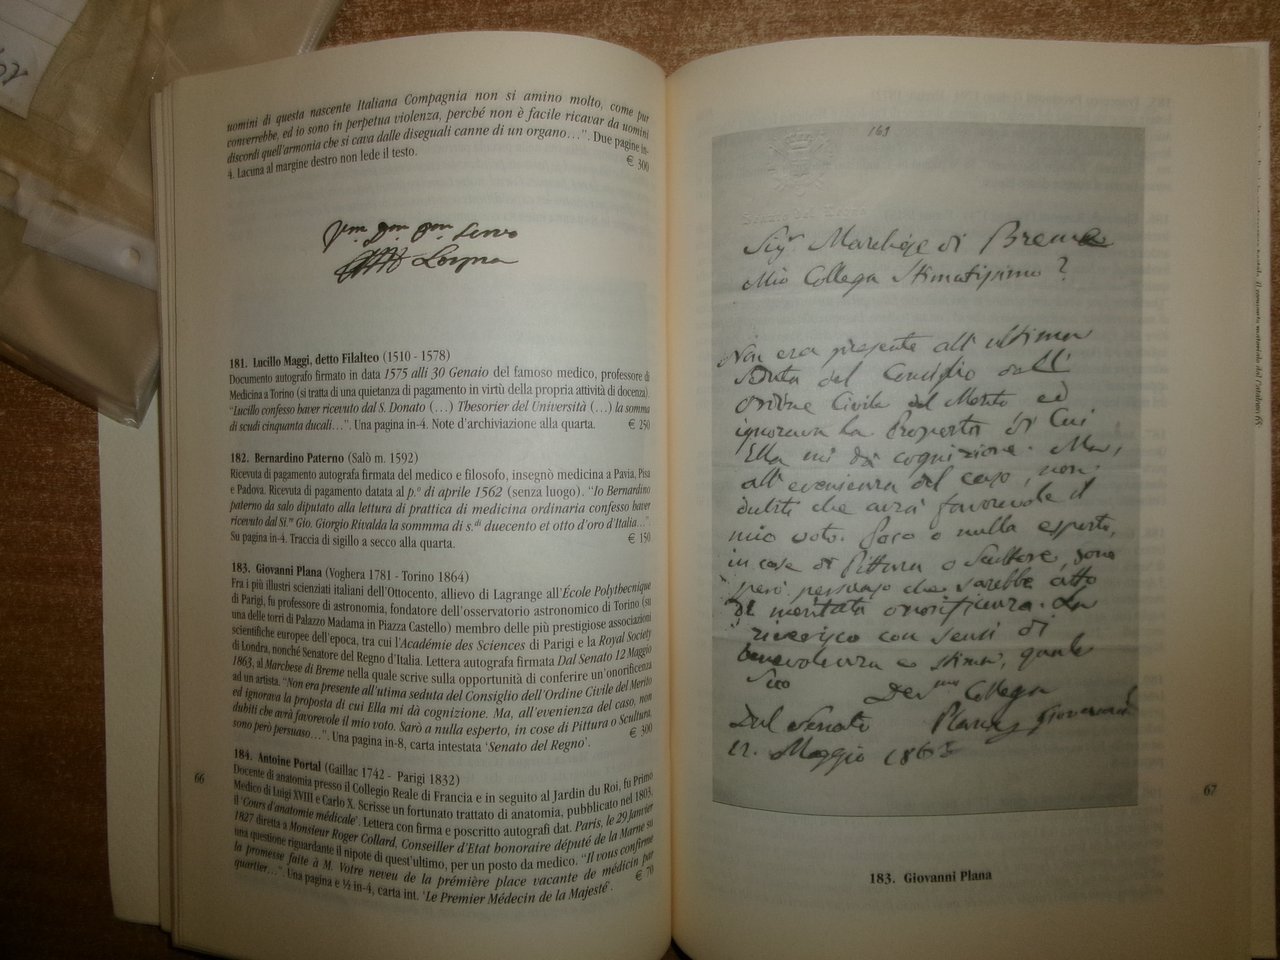 uomini di questa nascente Italiana Compagnia non si amino molto, come pur
converrebbe, ed io sono in perpetua violenza, perché non è facile ricavar da uomini
discordi quell'armonia che si cava dalle diseguali canne di un organo…". Due pagine in-
4. Lacuna al margine destro non lede il testo. € 300
Lorgna
181. Lucillo Maggi, detto Filalteo (1510 - 1578)
Documento autografo firmato in data 1575 alli 30 Genaio del famoso medico, professore di
Medicina a Torino (si tratta di una quietanza di pagamento in virtù della propria attività di docenza).
"Lucillo confesso haver ricevuto dal S. Donato (…) Thesorier del Università (…) la somma
di scudi cinquanta ducali…". Una pagina in-4. Note d'archiviazione alla quarta. € 250
182. Bernardino Paterno (Salò m. 1592)
Ricevuta di pagamento autografa firmata del medico e filosofo, insegnò medicina a Pavia, Pisa
e Padova. Ricevuta di pagamento datata al p.º di aprile 1562 (senza luogo). "Io Bernardino
paterno da salo diputato alla lettura di prattica di medicina ordinaria confesso haver
ricevuto dal Si.ʳ Gio. Giorgio Rivalda la sommma di s.di duecento et otto d'oro d'Italia…"
Su pagina in-4. Traccia di sigillo a secco alla quarta. € 150
183. Giovanni Plana (Voghera 1781 - Torino 1864)
Fra i più illustri scienziati italiani dell'Ottocento, allievo di Lagrange all'École Polythecnique
di Parigi, fu professore di astronomia, fondatore dell'osservatorio astronomico di Torino (su
una delle torri di Palazzo Madama in Piazza Castello) membro delle più prestigiose associazioni
scientifiche europee dell'epoca, tra cui l'Académie des Sciences di Parigi e la Royal Society
di Londra, nonché Senatore del Regno d'Italia. Lettera autografa firmata Dal Senato 12 Maggio
1863, al Marchese di Breme nella quale scrive sulla opportunità di conferire un'onorificenza
ad un artista. "Non era presente all'utima seduta del Consiglio dell'Ordine Civile del Merito
ed ignorava la proposta di cui Ella mi dà cognizione. Ma, all'evenienza del caso, non
dubiti che avrà favorevole il mio voto. Sarò a nulla esperto, in cose di Pittura o Scultura,
sono però persuaso…". Una pagina in-8, carta intestata 'Senato del Regno'. € 300
184. Antoine Portal (Gaillac 1742 - Parigi 1832)
Docente di anatomia presso il Collegio Reale di Francia e in seguito al Jardin du Roi, fu Primo
Medico di Luigi XVIII e Carlo X. Scrisse un fortunato trattato di anatomia, pubblicato nel 1803,
il 'Cours d'anatomie médicale'. Lettera con firma e poscritto autografi dat. Paris, le 29 Janvier
1827 diretta a Monsieur Roger Collard, Conseiller d'Etat honoraire député de la Marne su
una questione riguardante il nipote di quest'ultimo, per un posto da medico. "Il vous confirme
la promesse faite à M. Votre neveu de la première place vacante de médicin par
quartier…". Una pagina e ½ in-4, carta int. 'Le Premier Médecin de la Majesté'. € 70
66
161
Senato del Regno
Sigʳ Marchese di Breme
Mio Collega Stimatissimo
Non era presente all'ultima
Seduta del Consiglio dell'
Ordine Civile del Merito ed
ignorava la Proposta di Cui
Ella mi dà cognizione. Ma,
all'evenienza del caso, non
dubiti che avrà favorevole il
mio voto. Poco o nulla esperto,
in cose di Pittura o Scultura, sono
però persuaso che sarebbe atto
di meritata onorificenza. La
riverisco con sensi di
benevolenza e stima, quale
Suo Devᵐᵒ Collega
Dal Senato Plana Giovanni
12. Maggio 1863
183. Giovanni Plana
67